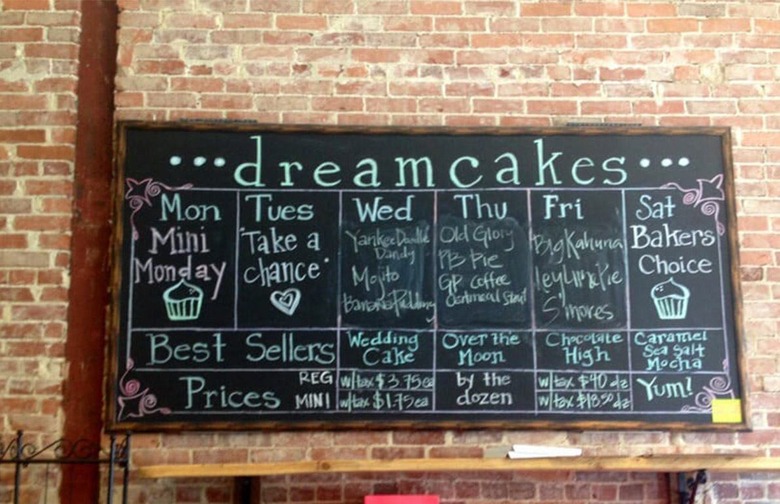 ...dreamcakes...
Mon
Mini
Monday
Tues
"Take a
chance"
Wed
Yankee Doodle
Dandy
Mojito
Banana Pudding
Thu
Old Glory
PB Pie
GP Coffee
Oatmeal Stout
Fri
Big Kahuna
Key Lime Pie
S'mores
Sat
Bakers
Choice
Best Sellers
Wedding
Cake
Over the
Moon
Chocolate
High
Caramel
Sea Salt
Mocha
Prices REG w/tax $3.75 ea by the w/tax $40 dz Yum!
MINI w/tax $1.75 ea dozen w/tax $18.50 dz